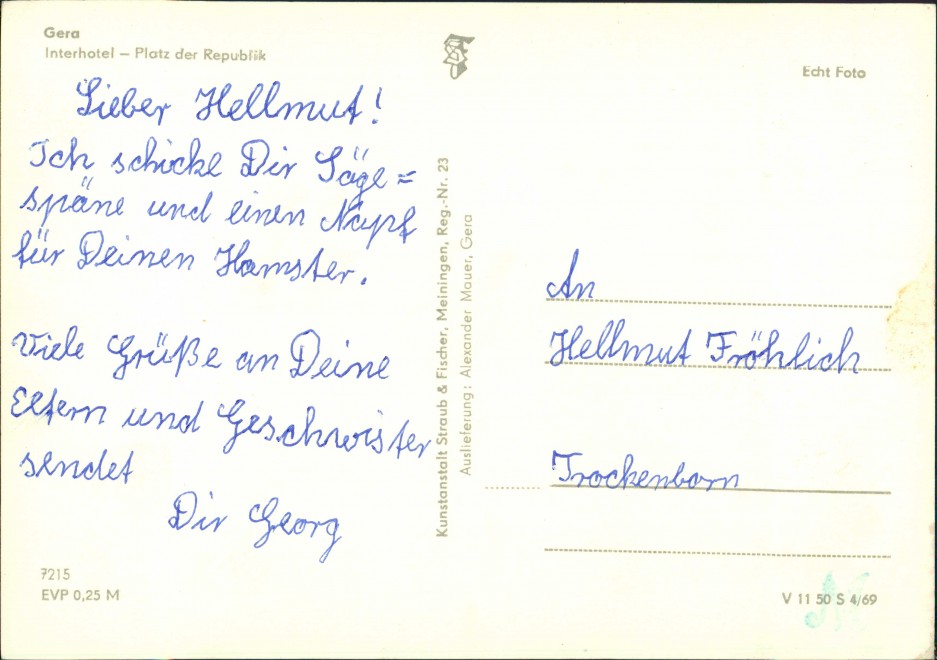 Gera
Interhotel – Platz der Republik
Echt Foto
Lieber Hellmut!
Ich schicke Dir Säge=
späne und einen Napf
für Deinen Hamster.
Viele Grüße an Deine
Eltern und Geschwister
sendet
Dir Georg
7215
EVP 0,25 M
Kunstanstalt Straub & Fischer, Meiningen, Reg.-Nr. 23
Auslieferung: Alexander Mauer, Gera
An
Hellmut Fröhlich
Trockenborn
V 11 50 S 4/69